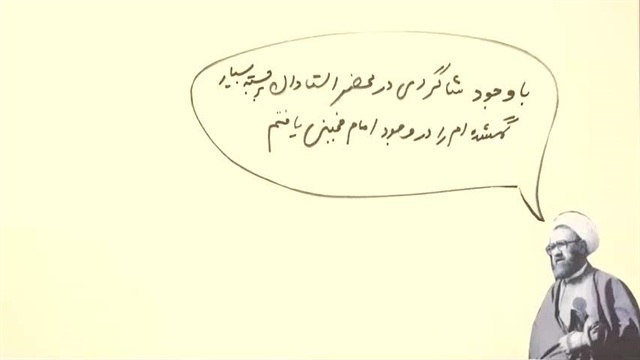 با وجود شاگردی در محضر استادان برجسته بسیار
گمشده ام را در وجود امام خمینی یافتم